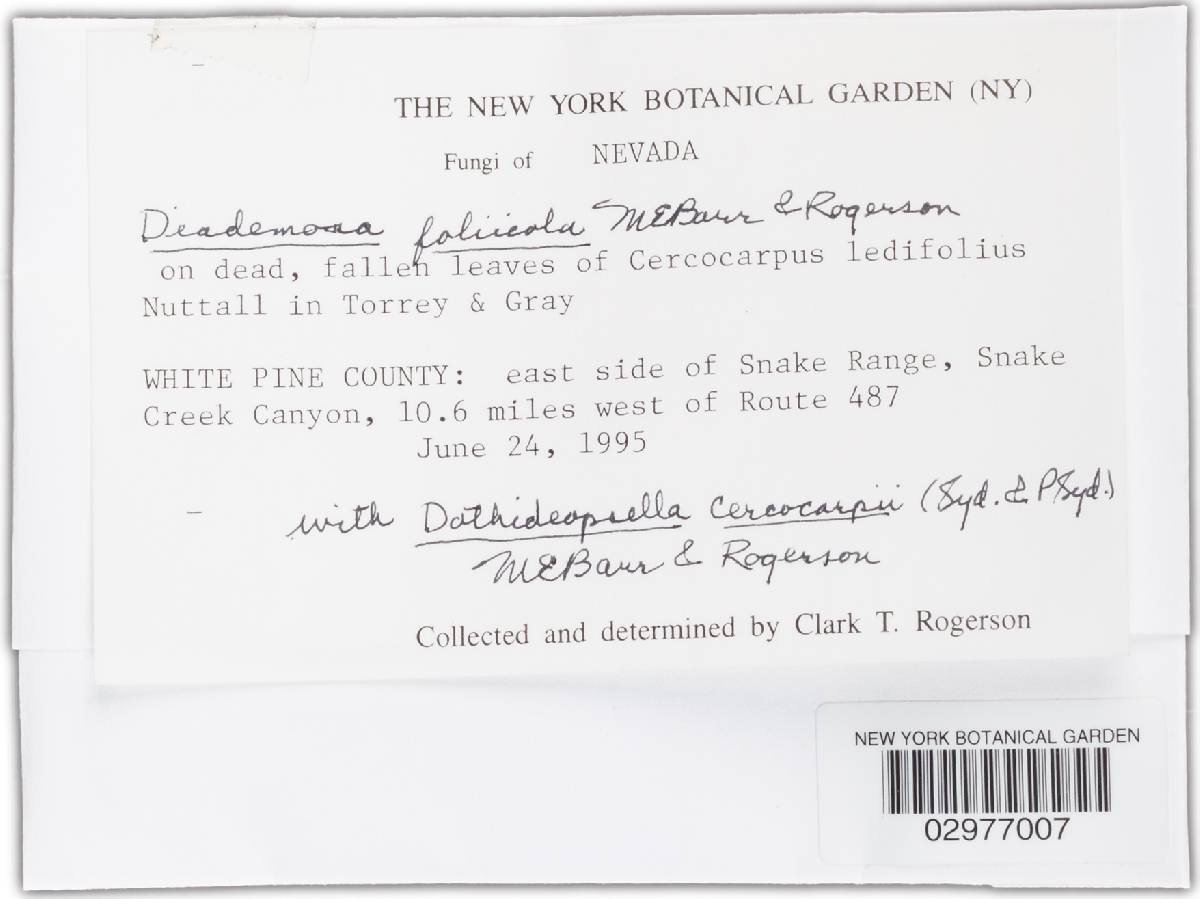 THE NEW YORK BOTANICAL GARDEN (NY)
Fungi of NEVADA
Diademosa foliicola MEBarr & Rogerson
on dead, fallen leaves of Cercocarpus ledifolius
Nuttall in Torrey & Gray
WHITE PINE COUNTY: east side of Snake Range, Snake
Creek Canyon, 10.6 miles west of Route 487
June 24, 1995
with Dothideopsella cercocarpii (Syd. & PSyd.)
MEBarr & Rogerson
Collected and determined by Clark T. Rogerson
NEW YORK BOTANICAL GARDEN
02977007